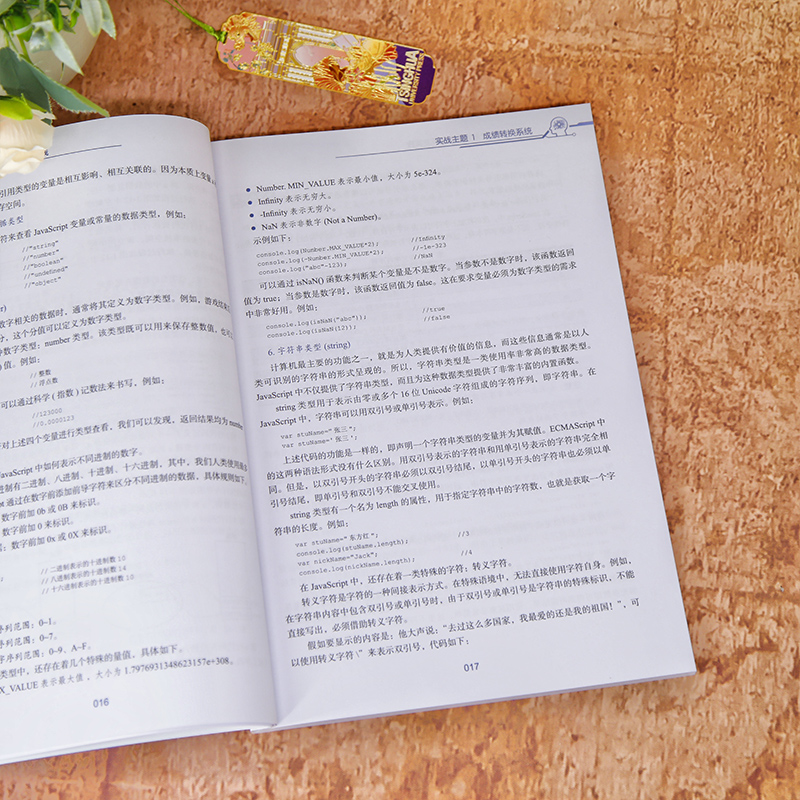 TSINGHUA
UNIVERSITY PRESS
引用类型的变量是相互影响、相互关联的。因为本质上变量
存空间。
据类型
符来查看 JavaScript 变量或常量的数据类型，例如:
//"string"
//"number"
//"boolean"
//"undefined"
//"object"
数字相关的数据时，通常将其定义为数字类型。例如，游戏结束
分，这个分值可以定义为数字类型。
种数字类型: number 类型。该类型既可以用来保存整数值，也
值。例如:
// 整数
// 浮点数
可以通过科学 ( 指数 ) 记数法来书写，例如:
//123000
//0.0000123
对上述四个变量进行类型查看，我们可以发现，返回结果均为 number
JavaScript 中如何表示不同进制的数字。
进制有二进制、八进制、十进制、十六进制，其中，我们人类使用最
pt 通过在数字前添加前导字符来区分不同进制的数据，具体规则如下。
数字前加 0b 或 0B 来标识。
数字前加 0 来标识。
: 数字前加 0x 或 0X 来标识。
// 二进制表示的十进制数 10
// 八进制表示的十进制数 14
// 十六进制表示的十进制数 10
序列范围: 0~1。
序列范围: 0~7。
字序列范围: 0~9、A~F。
类型中，还存在着几个特殊的量值，具体如下。
X_VALUE 表示最大值，大小为 1.7976931348623157e+308。
016
实战主题 1 成绩转换系统
● Number. MIN_VALUE 表示最小值，大小为 5e-324。
● Infinity 表示无穷大。
● -Infinity 表示无穷小。
● NaN 表示非数字 (Not a Number)。
示例如下:
console.log(Number.MAX_VALUE*2); //Infinity
console.log(-Number.MIN_VALUE*2); //-1e-323
console.log("abc"-123); //NaN
可以通过 isNaN() 函数来判断某个变量是不是数字。当参数不是数字时，该函数返回
值为 true；当参数是数字时，该函数返回值为 false。这在要求变量必须为数字类型的需求
中非常好用。例如:
console.log(isNaN("abc")); //true
console.log(isNaN(12)); //false
6. 字符串类型 (string)
计算机最主要的功能之一，就是为人类提供有价值的信息，而这些信息通常是以人
类可识别的字符串的形式呈现的。所以，字符串类型是一类使用率非常高的数据类型。
JavaScript 中不仅提供了字符串类型，而且为这种数据类型提供了非常丰富的内置函数。
string 类型用于表示由零或多个 16 位 Unicode 字符组成的字符序列，即字符串。在
JavaScript 中，字符串可以用双引号或单引号表示。例如:
var stuName="张三";
var stuName='张三';
上述代码的功能是一样的，即声明一个字符串类型的变量并为其赋值。ECMAScript 中
的这两种语法形式没有什么区别。用双引号表示的字符串和用单引号表示的字符串完全相
同。但是，以双引号开头的字符串必须以双引号结尾，以单引号开头的字符串也必须以单
引号结尾，即单引号和双引号不能交叉使用。
string 类型有一个名为 length 的属性，用于指定字符串中的字符数，也就是获取一个字
符串的长度。例如:
var stuName="东方红"; //3
console.log(stuName.length);
var nickName="Jack"; //4
console.log(nickName.length);
在 JavaScript 中，还存在着一类特殊的字符: 转义字符。
转义字符是字符的一种间接表示方式。在特殊语境中，无法直接使用字符自身。例如，
在字符串内容中包含双引号或单引号时，由于双引号或单引号是字符串的特殊标识，不能
直接写出，必须借助转义字符。
假如要显示的内容是: 他大声说: “去过这么多国家，我最爱的还是我的祖国！”，可
以使用转义字符\" 来表示双引号，代码如下:
017